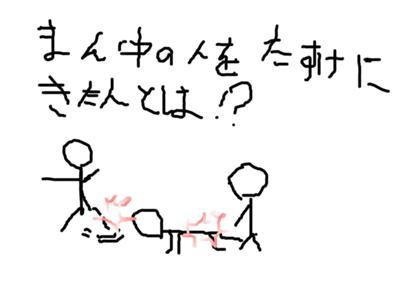 まん中の人をたすけに
きた人とは?